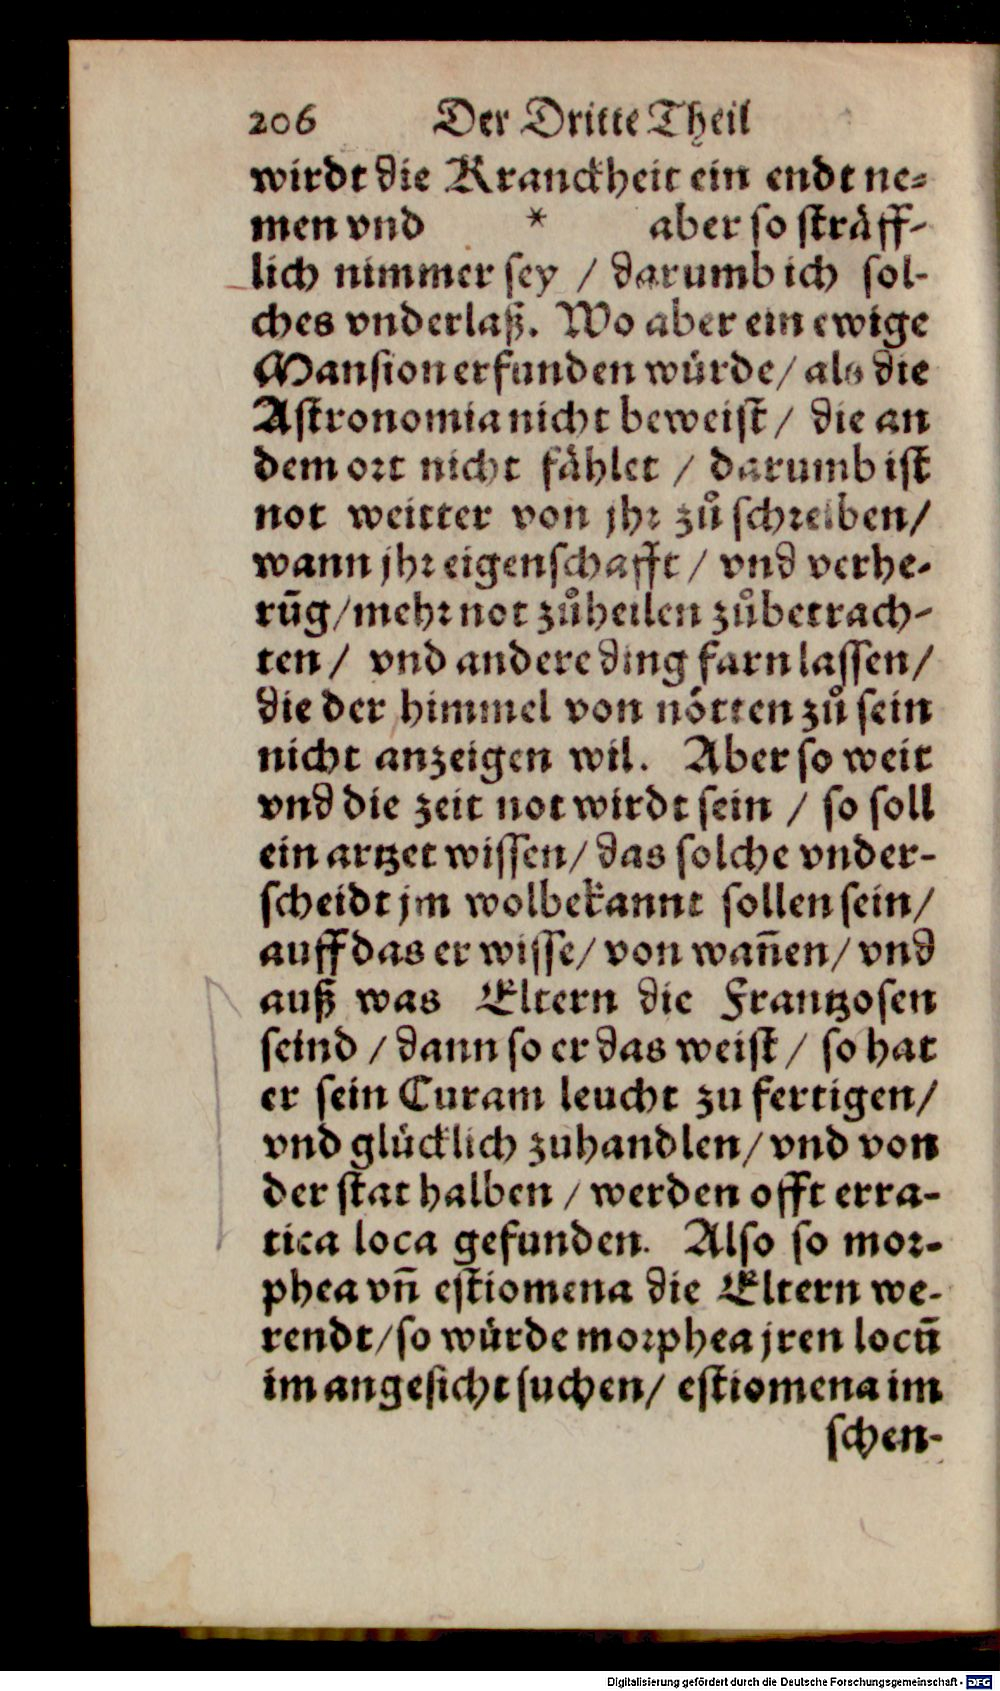 206 Der Dritte Theil
wirdt die Kranckheit ein endt ne⸗
men vnd * aber so sträff-
lich nimmer sey / darumb ich sol-
ches vnderlaß. Wo aber ein ewige
Mansion erfunden würde/ als die
Astronomia nicht beweist / die an
dem ort nicht fählet / darumb ist
not weitter von jhr zů schreiben/
wann jhr eigenschafft / vnd verhe-
rūg/mehr not zůheilen zůbetrach-
ten / vnd andere ding farn lassen/
die der himmel von nötten zů sein
nicht anzeigen wil. Aber so weit
vnd die zeit not wirdt sein / so soll
ein artzet wissen/ das solche vnder-
scheidt jm wolbekannt sollen sein/
auff das er wisse/ von wañen/ vnd
auß was Eltern die Frantzosen
seind / dann so er das weist / so hat
er sein Curam leucht zu fertigen/
vnd glücklich zuhandlen/ vnd von
der stat halben / werden offt erra-
tica loca gefunden. Also so mor-
phea vñ estiomena die Eltern we-
rendt/so würde morphea jren locū
im angesicht suchen/ estiomena im
schen-
Digitalisierung gefördert durch die Deutsche Forschungsgemeinschaft - DFG